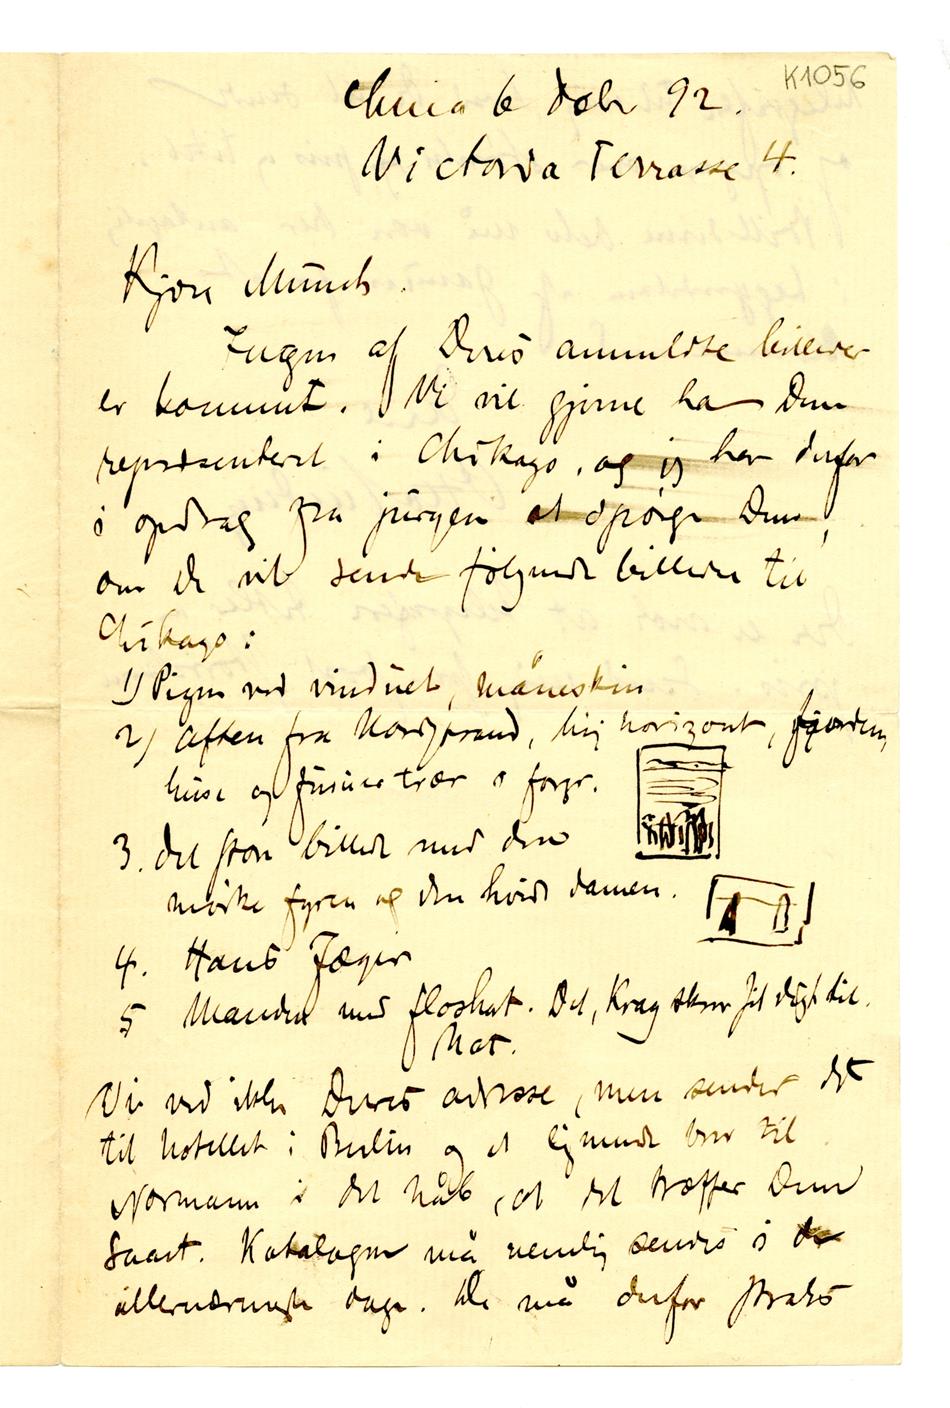 K1056
Chnia 6 Dcbr 92.
Victoria Terrasse 4.
Kjære Munch.
Ingen af Deres anmeldte billeder
er kommet. Vi vil gjerne ha Dem
repræsenteret i Chikago, og jeg har derfor
i opdrag fra juryen at spørge Dem,
om De vil sende følgende billeder til
Chikago:
1) Pigen ved vinduet, måneskin
2) Aften fra Nordstrand, høi horizont, fjorden,
huse og furuetrær i forgr.
3. det store billede med den
mørke fyren og den hvide damen.
4. Hans Jæger
5 Manden med floshat. Det, Krag skrev til.
Hat.
Vi ved ikke Deres adresse, men sender det
til hotellet i Berlin og et lignende brev til
Normann i det håb, at det træffer Dem
snart. Katalogen må nemlig sendes i de
allernærmeste dage. De må derfor straks